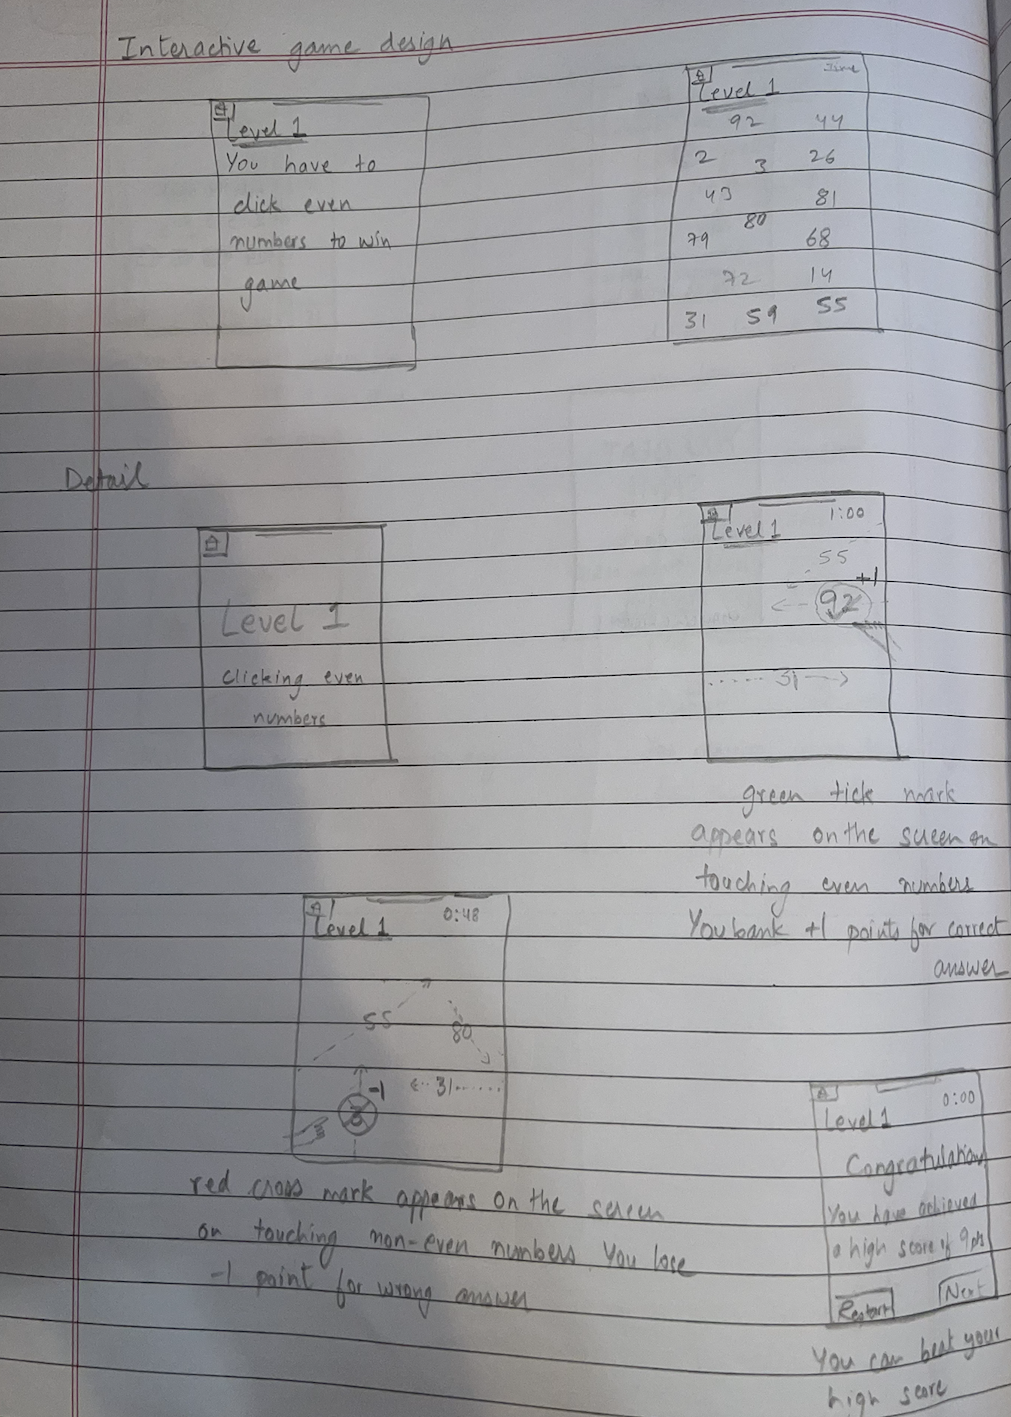 Interactive game design
Level 1
You have to
click even
numbers to win
game
Time
Level 1
92 44
2 3 26
43 81
80
79 68
72 14
31 59 55
Detail
Level 1
clicking even
numbers
1:00
Level 1
55
+1
92
31
green tick mark
appears on the screen on
touching even numbers
You bank +1 points for correct
answer
0:48
Level 1
55
80
-1
31
3
red cross mark appears on the screen
on touching non-even numbers. You lose
-1 point for wrong answer
0:00
Level 1
Congratulations
You have achieved
a high score of 9 pts
Restart Next
You can beat your
high score